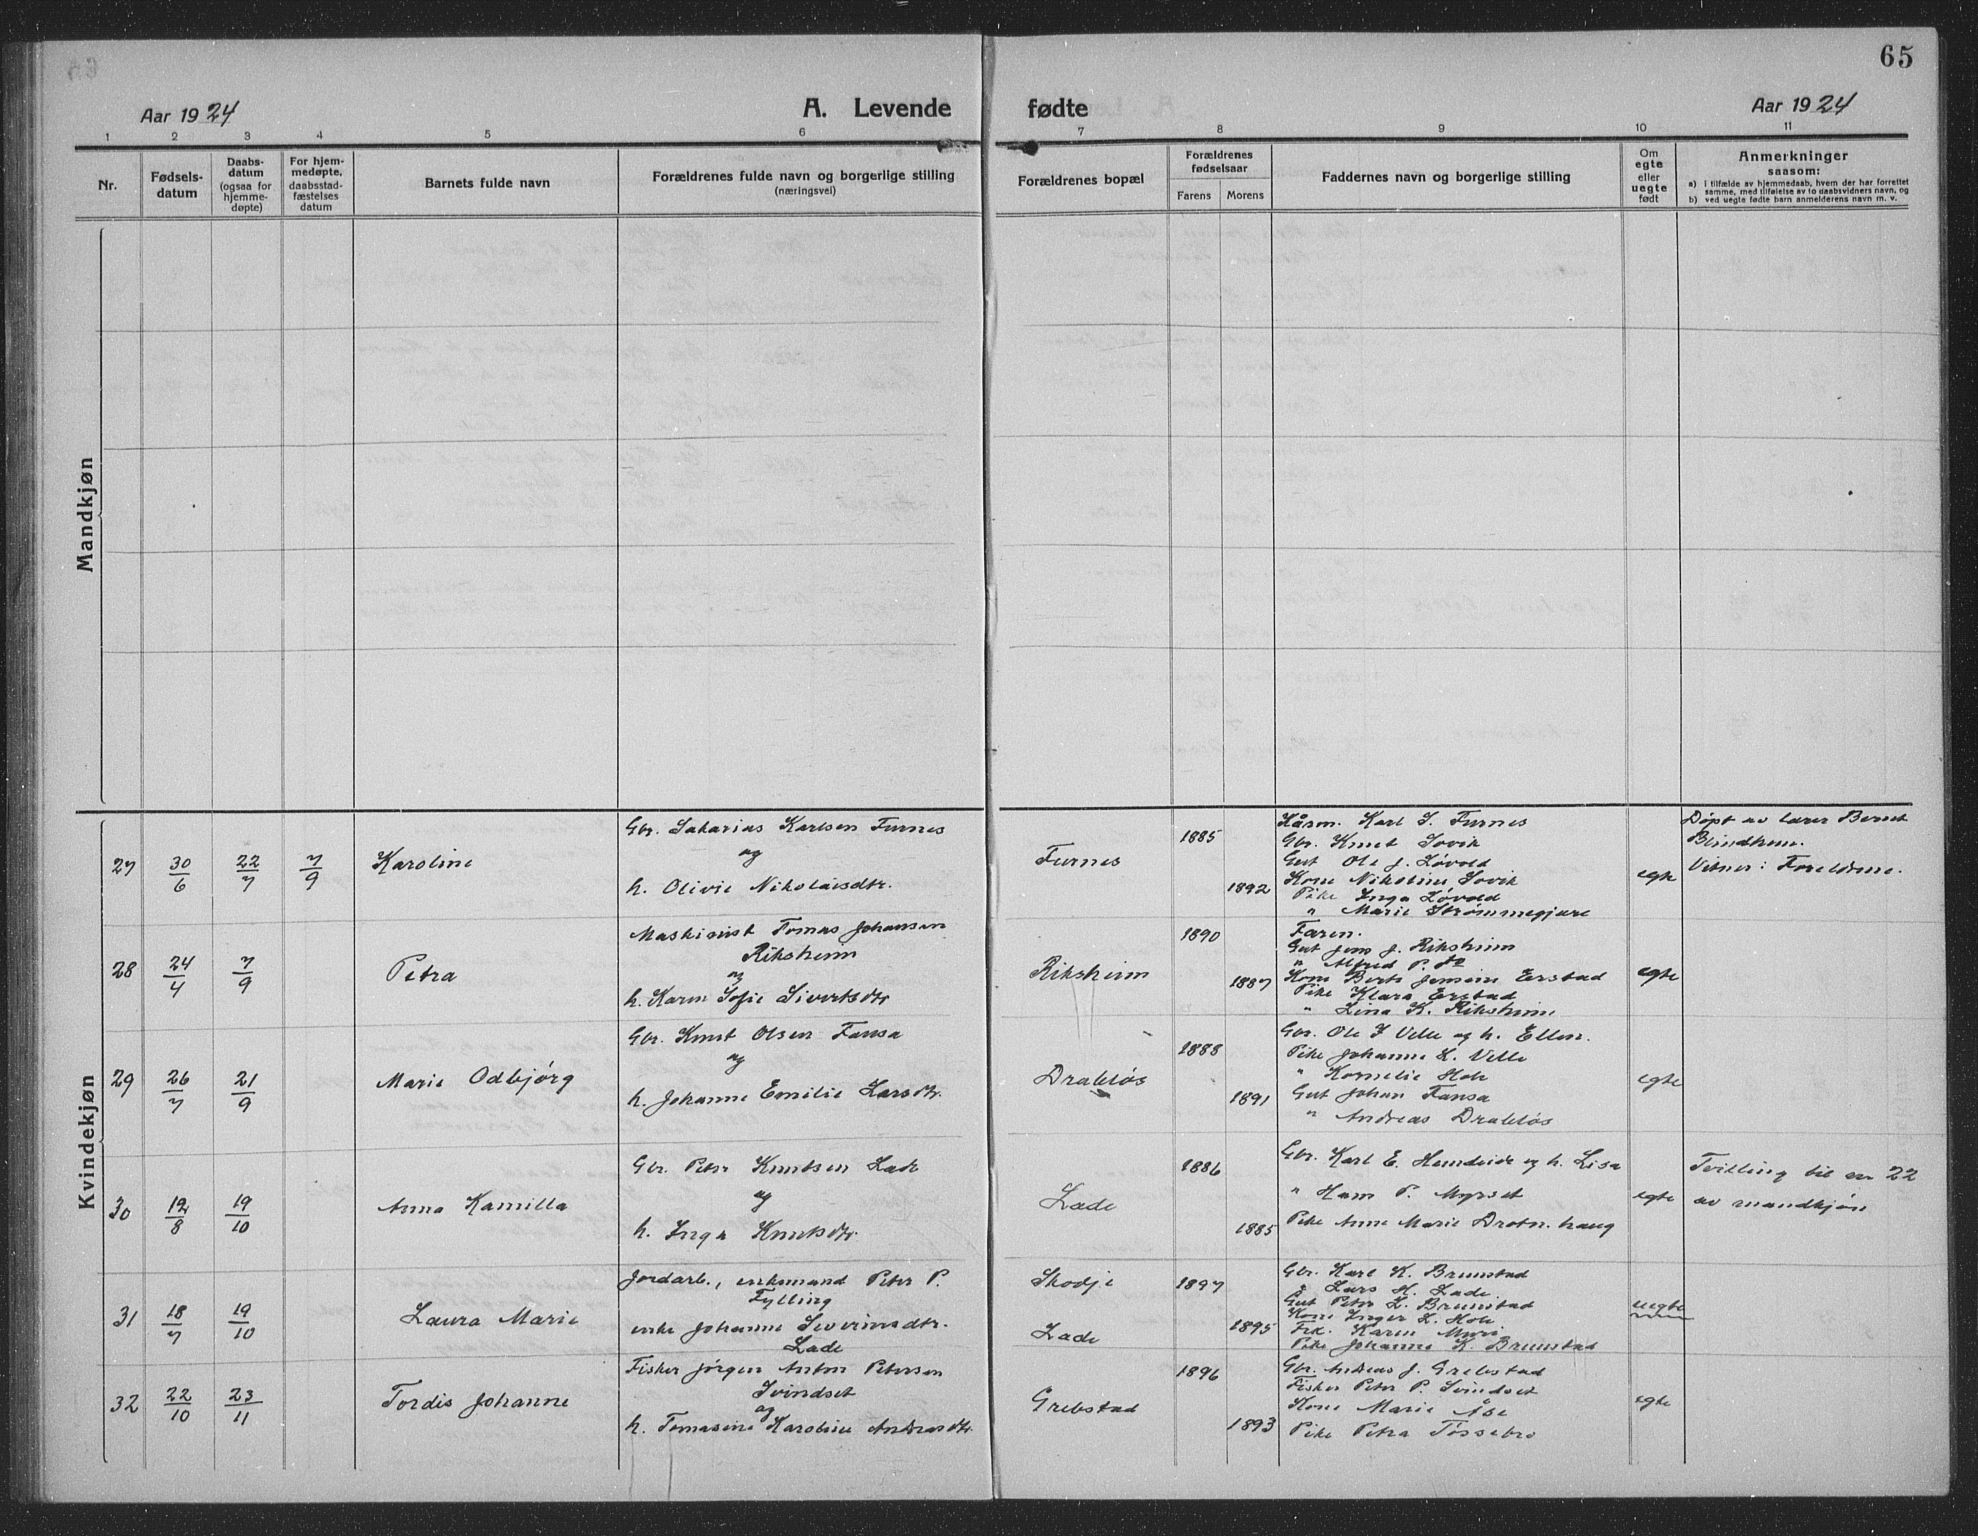 65
Aar 1924
A. Levende fødte
Aar 1924
1 2 3 4 5 6 7 8 9 10 11
Nr.
Fødsels-
datum
Daabs-
datum
(ogsaa for
hjemme-
døpte)
For hjem-
medøpte,
daabsstad-
fæstelses
datum
Barnets fulde navn
Forældrenes fulde navn og borgerlige stilling
(næringsvei)
Forældrenes bopæl
Forældrenes
fødselsaar
Farens Morens
Faddernes navn og borgerlige stilling
Om
egte
eller
uegte
født
Anmerkninger
saasom:
a) i tilfælde av hjemmedaab, hvem der har forrettet
samme, med tilføielse av to daabsvidners navn, og
b) ved uegte fødte barn anmelderens navn m. v.
Mandkjøn
Kvindekjøn
27 30/6 22/7 7/9 Karoline
Gbr. Sakarias Karlsen Furnes
og
h. Olivie Nikolaisdtr.
Furnes
1885
1892
Kåsm. Karl S. Furnes
Gbr. Knut Sovik
Gut Ole J. Løvold
Kone Nikoline Sovik
Pike Inga Løvold
" Marie Strømmegjure
egte
Døpt av lærer Bernt
Blindheim.
Vitner: Foreldrene.
28 24/4 7/9 Petra
Maskinist Tomas Johansen
Riksheim
og
h. Karen Sofie Sivertsdtr
Riksheim
1890
1887
Faren.
Gut Jens J. Riksheim
" Alfred P. do
Kone Berte Jensine Erstad
Pike Klara Erstad
" Lina K. Riksheim
egte
29 26/7 21/9 Marie Odbjörg
Gbr. Knut Olsen Fansa
og
h. Johanne Emilie Larsdtr.
Drabløs
1888
1891
Gbr. Ole J Velle og h. Ellen.
Pike Johanne L. Velle
" Kornelie Hole
Gut Johan Fansa
" Andreas Drabløs
egte
30 12/8 19/10 Anna Kamilla
Gbr. Peter Knutsen Lade
og
h. Inga Knutsdtr.
Lade
1886
1885
Gbr. Karl E. Hemdeide og h. Lisa
" Hans P. Myrset
Pike Anne Marie Drotn.haug
egte
Tvilling til nr 22
av mandkjøn
31 18/7 19/10 Laura Marie
Jordarb., enkemand Peter P.
Fylling
enke Johanne Severinsdtr.
Lade
Skodje
Lade
1897
1895
Gbr. Karl K. Brunstad
" Lars H. Lade.
Gut Peter L. Brunstad
Kone Inger L. Hole
Frk. Karen Myri
Pike Johanne K. Brunstad
uegte
32 22/10 23/11 Tordis Johanne
Fisker Jörgen Anton Petersen
Svindset
og
h. Tomasine Karoline Andreasdtr.
Grebstad
1896
1893
Gbr. Andreas J. Grebstad
Fisker Peter P. Svindset
Kone Marie Åse
Pike Petra Tøssebro
egte